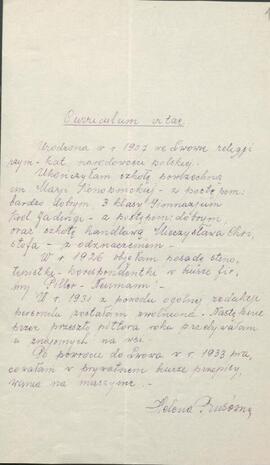 Curriculum vitae
Urodzona w r 1907 we Lwowie religji
rzym-kat. narodowości polskiej.
Ukończyłam szkołę powszechną
im. Marji Konopnickiej - z postępem
bardzo dobrym, 3 klasy Gimnazjum
Król. Jadwigi - z postępem dobrym,
oraz szkołę handlową Mieczysława
z odznaczeniem -
W r 1926 objęłam posadę steno,
typistki - korespondentki w biurze fir,
my Neumann -
W r. 1931 z powodu ogólnej redukcji
personalu zostałam zwolniona. Następnie
przez przeszło półtora roku przebywałam
u znajomych na wsi.
Po powrocie do Lwowa w r. 1933 pra,
cowałam w prywatnem biurze przepisy,
wania na maszynie. -
Helena